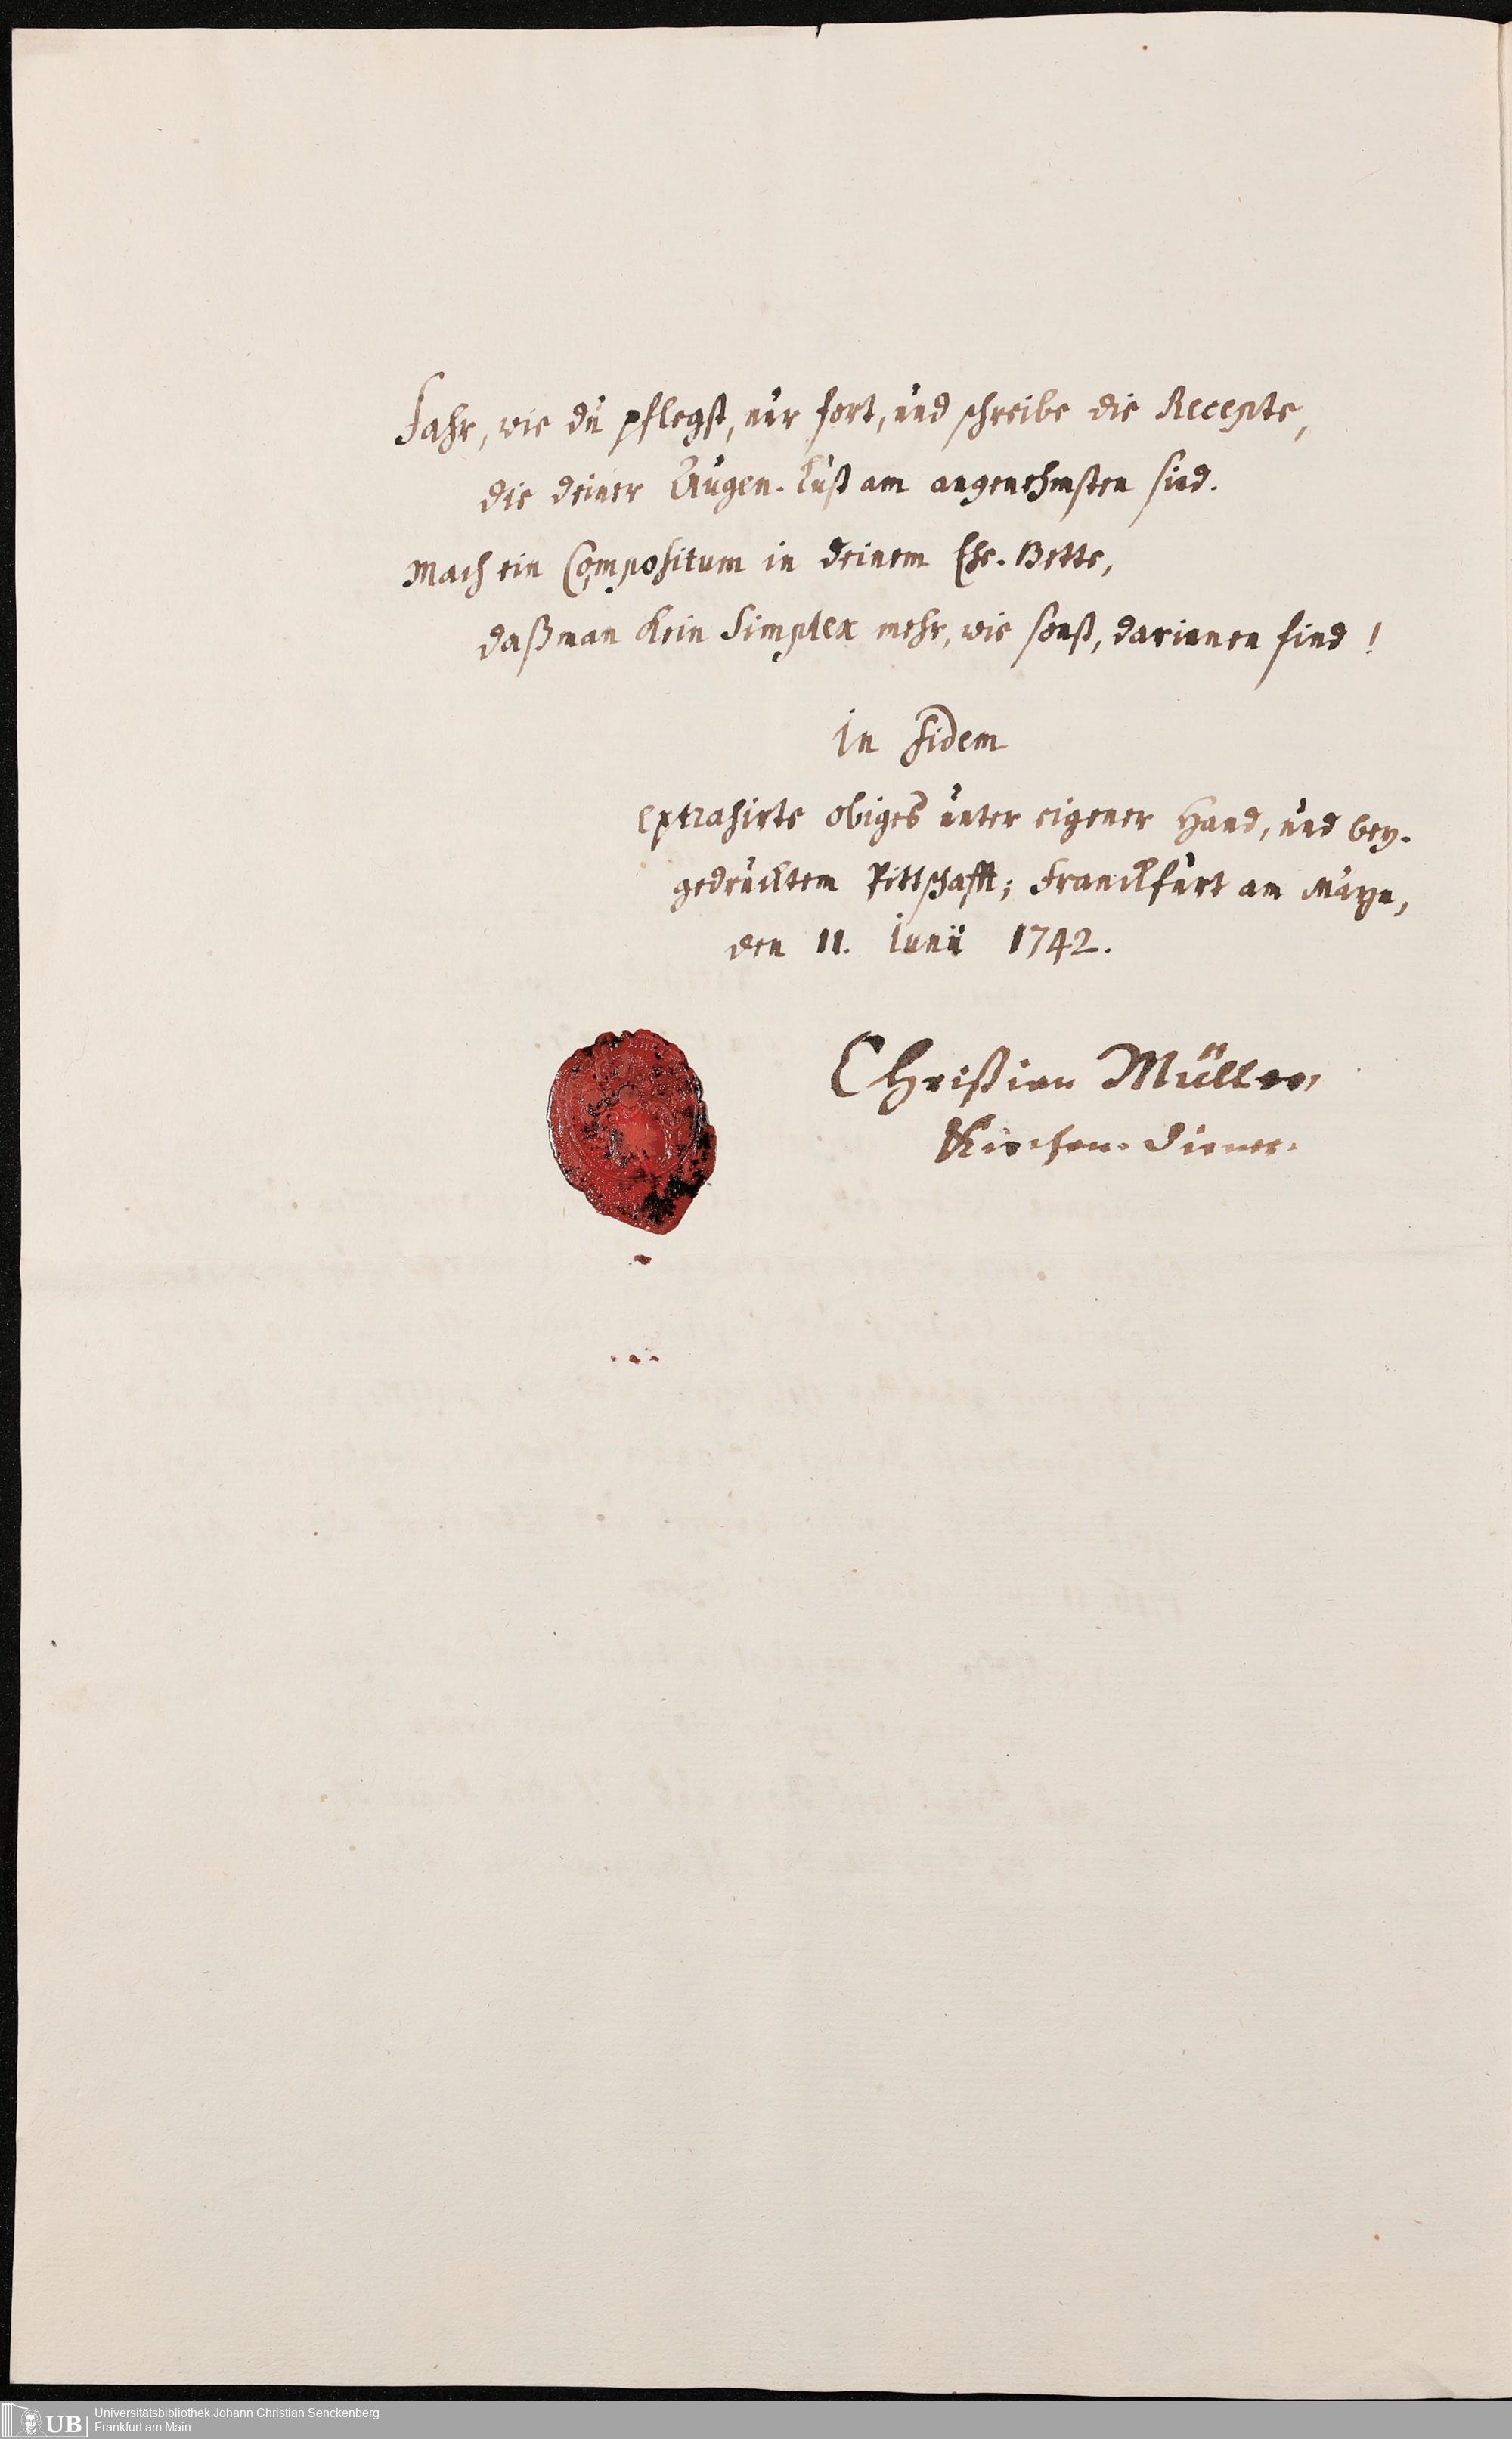 Fahr, wie du pflegst, nur fort, und schreibe die Recepte,
die deiner Augen-Lust am angenehmsten sind.
Mach ein Compositum in deinem Ehe-Bette,
daß man kein Simplex mehr, wie sonst, darinnen find!
in Fidem
extrahirte obiges unter eigener Hand, und bey-
gedrucktem Pittschafft; Franckfurt am Mayn,
den 11. Junii 1742.
Christian Müller,
Kirchen-Diener.
UB
Universitätsbibliothek Johann Christian Senckenberg
Frankfurt am Main